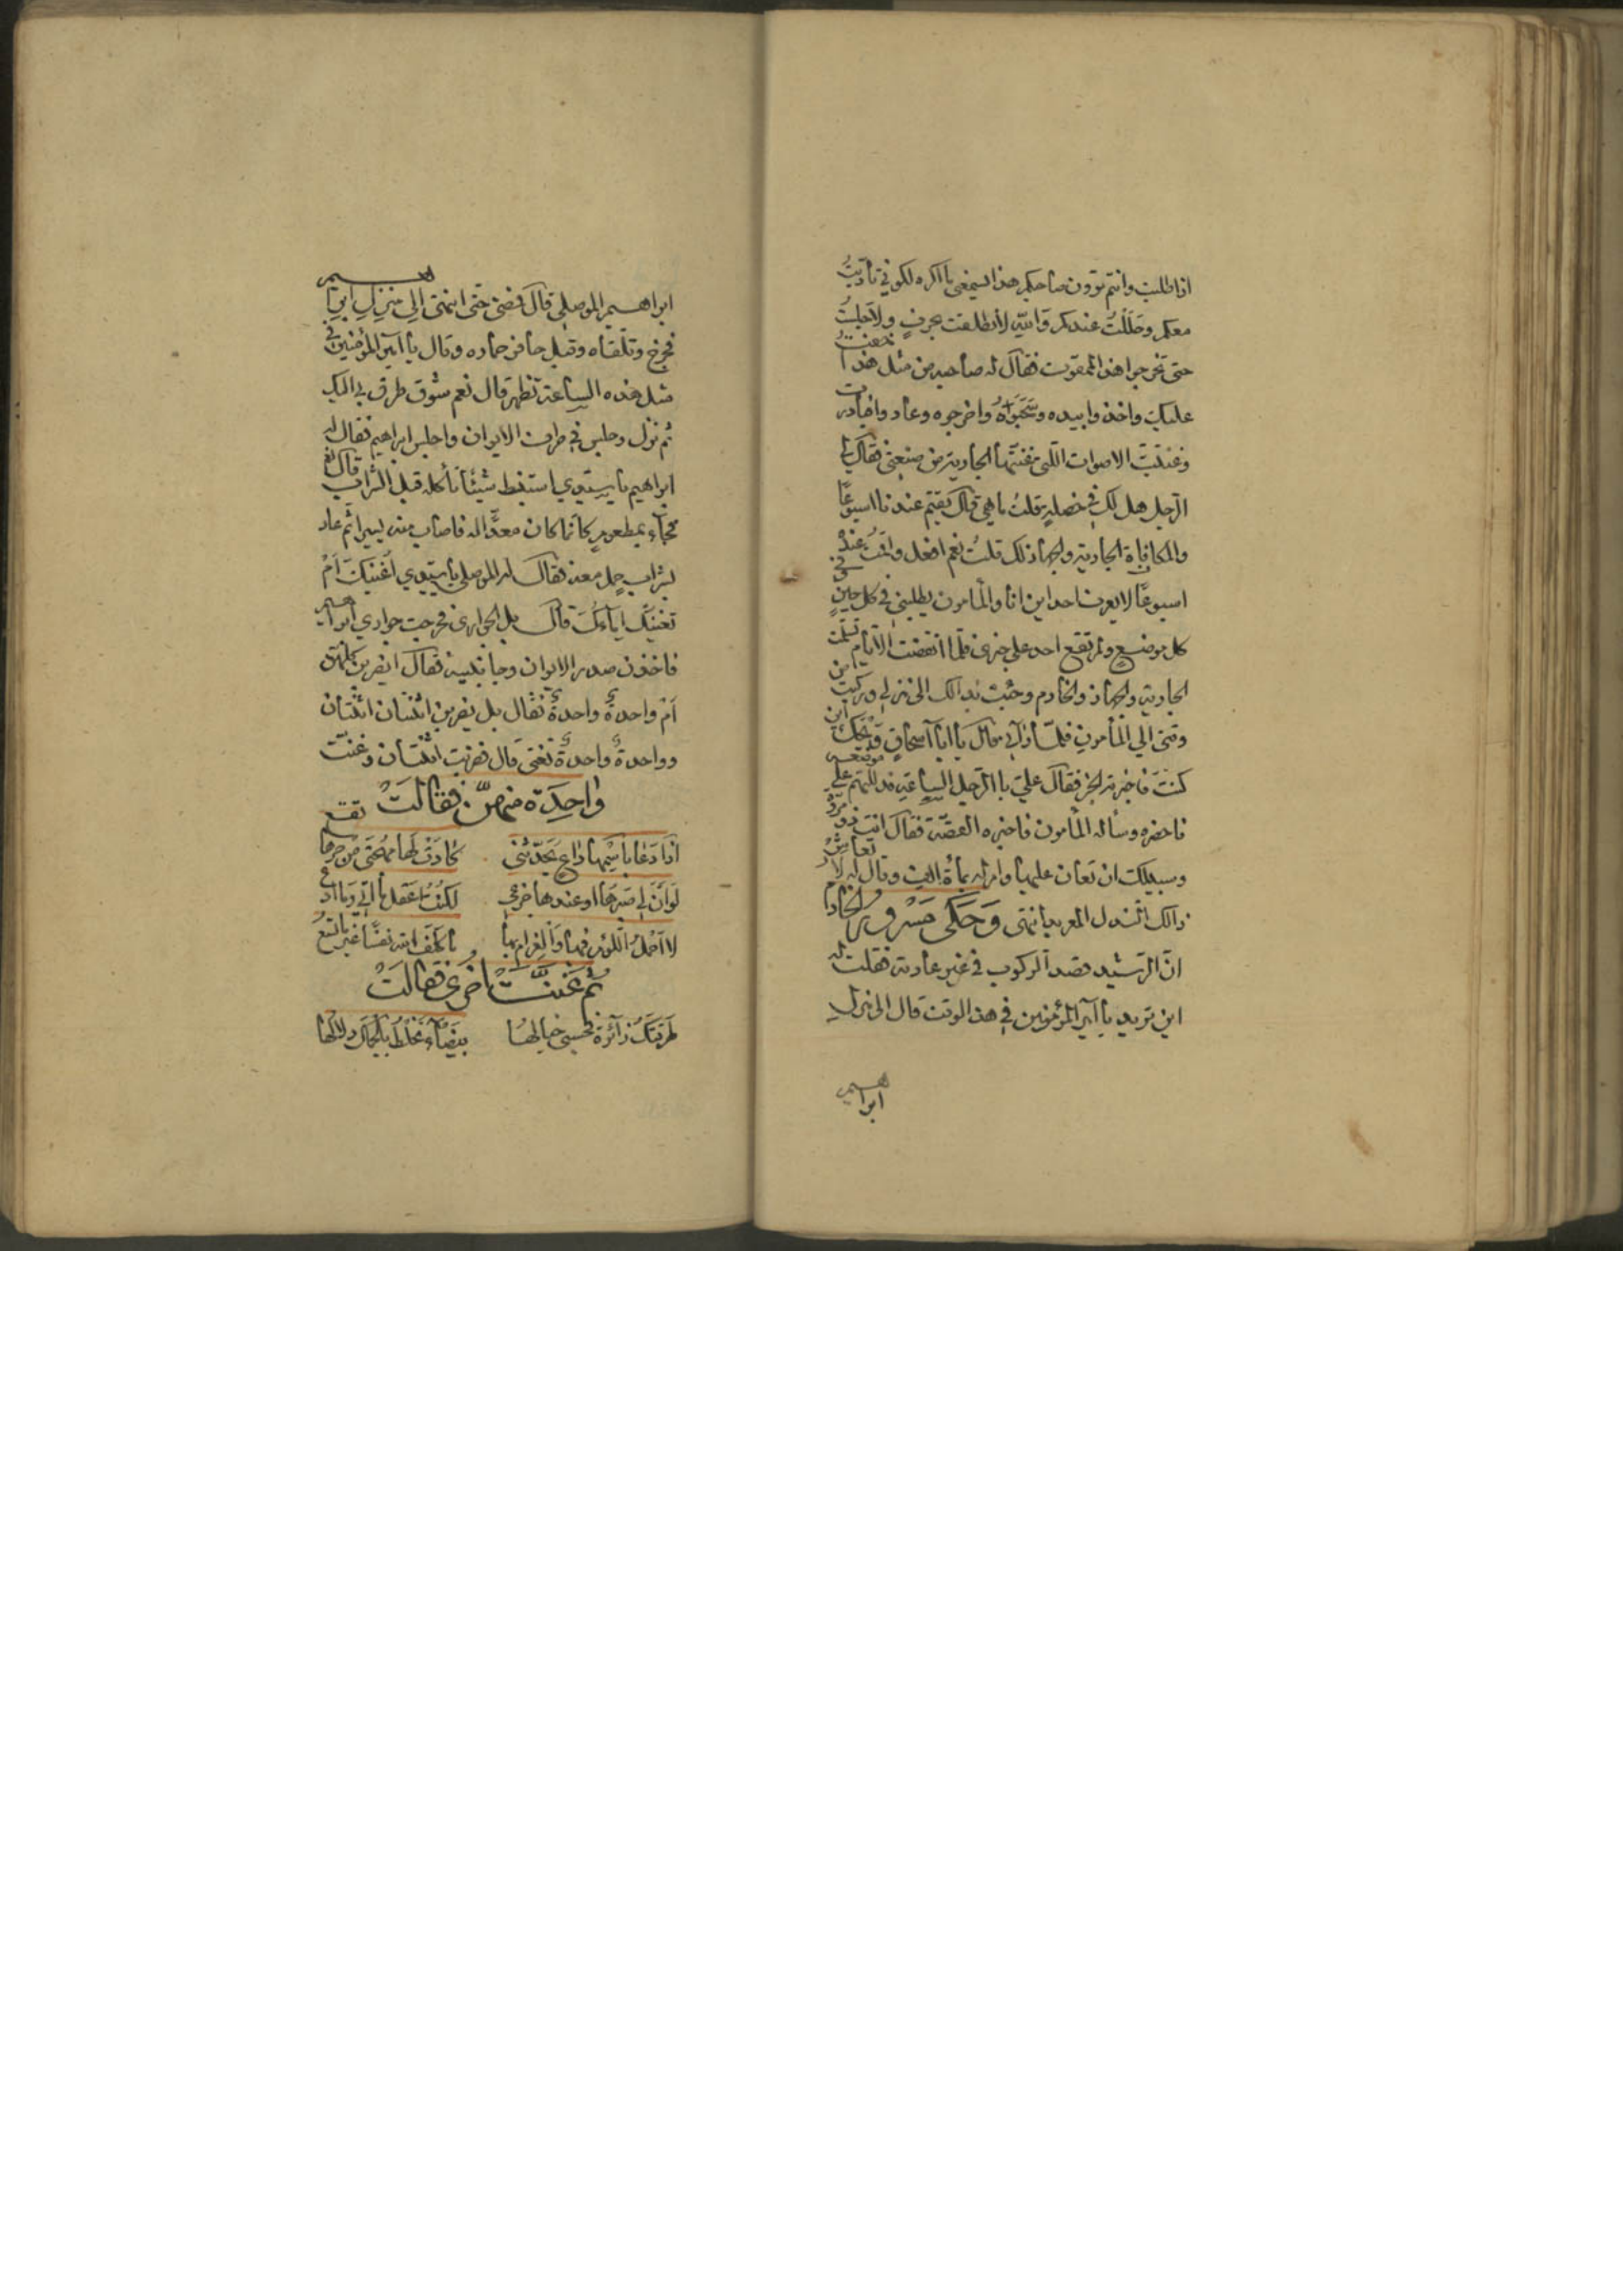 اذا طلبت وانتم ترون صاحبكم هذا يسمعني ما اكره لكوني تأدبتُ
معكم وحَلَلْتُ عندكم والله لانطلقت بحرفٍ ولا جلستُ
حتى تخرجوا هذا الممقوت فقال له صاحبه من مثل هذا خفتُ
عليك واخذوا بيده وسَحَبُوْاهُ واخرجوه وعاد واخبارت
وغنّيتُ الاصوات اللتي غنتّها الجارية من صنعتي فقال لي
الرّجل هل لك في خصلةٍ قلتُ ما هي قال تقيم عندنا اسبوعًا
والمكافاة الجارية والحمار لك قلتُ نعم افعل واقمتُ عنده
اسبوعًا لا يعرف احد اين انا والمأمون يطلبني في كل حينٍ في
كل موضع ولم تقع احد علي خبري فلمّا انقضت الايّام تسلّمت
الجارية والحمار والخادم وجئت بذالك الي منزلي وركبت من
وقتي الي المأمون فلمّا رآني قال يا ابا اسحاق وَيْحَكَ اين
كنتَ فاخبرته الخبر فقال عليّ با الرّجل السّاعة فدللتهم علي موضعه
فاحضره وسأله المأمون فاخبره القصّة فقال انت ذو مروّة
وسبيلك ان تعان عليها وامر له بمأة الف وقال له لا تعاشر
ذالك النذل المعربد انتهى وَحَكَى مَسْرور الخادم
انّ الرّشيد قصد الركوب في غير عادته فقلت له
اين تريد يا امير المؤمنين في هذا الوقت قال الى منزل
ابراهيم
ابراهيم الموصلي قال فمضى حتّى انتهى الي منزل ابراهيم
فخرج وتلقاه وقبل حافر حماره وقال يا امير المؤمنين في
مثل هذه الساعة تظهر قال نعم شوق طرق بي اليك
ثم نزل وجلس في طرف الايوان واجلس ابراهيم فقال له
ابراهيم يا سيّدي استنبط شيئًا نأكله قبل الشراب قال نعم
فجآء بمطعومٍ كانّما كان معدًّا له فاصاب منه يسيرا ثم عاد
بشراب حمل معه فقال له الموصلي يا سيّدي أُغنيكَ اَمْ
تغنيّك اياءكَ قال بل الجواري فخرجت جواري ابراهيم
فاخذن صدر الايوان وجانبيه فقال ايضربن كلهنّ
اَمْ واحدةً واحدةً فقال بل يضربن اثنتان اثنتان
وواحدةً واحدةً تغنى قال فضربت اثنتان وغنّت
واحِدَة منهنّ فقالَتْ
اذا دَعا باسْمِها داعٍ يُحَدّثني كادَتْ لها مهُجَتي من حرّها تقع
لَوْ اَنّ لي صَبرَها او عندها جزعي لكنُتُ اعقل ما آتي وما ادع
لا احمْلُ اللوْم فيها والغرام بها ما كلّفَ الله نفسًا غير ما تسَعُ
ثم غنّتْ اُخرى فقالَتْ
طَرَقتَكَ زآئرة فحيي خيالها بيضآء تخلطُ بالجمال دلالها